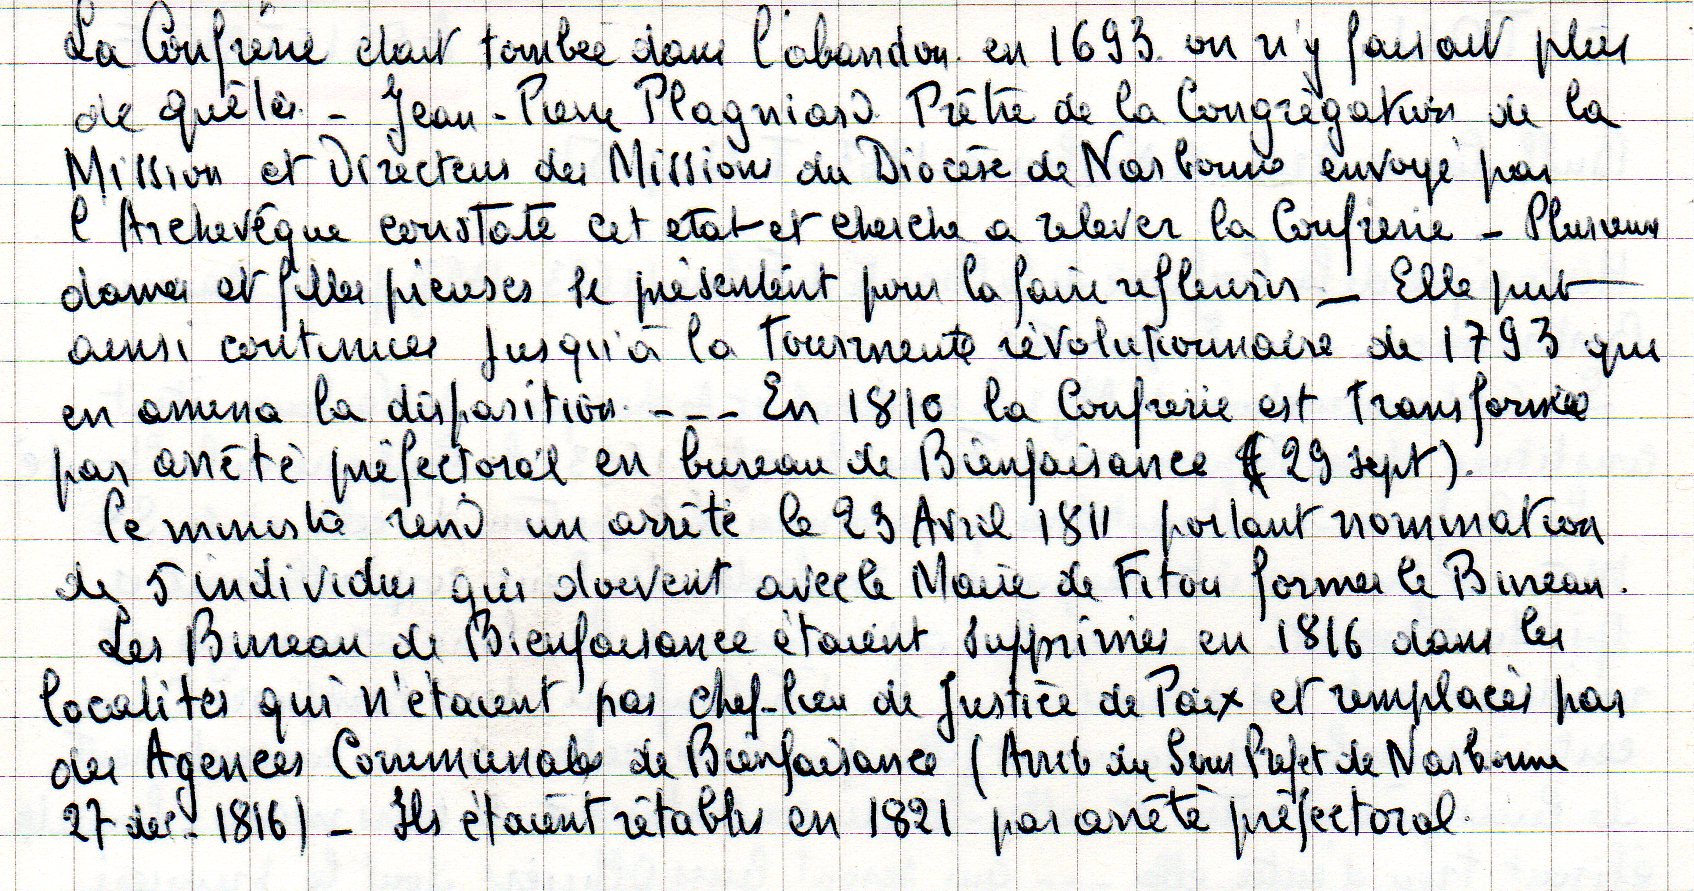 La Confrérie était tombée dans l'abandon en 1693. on n'y faisait plus
de quêtes. - Jean-Pierre Plagniard Prêtre de la Congrégation de la
Mission et Directeur des Missions du Diocèse de Narbonne envoyé par
l'Archevêque constate cet état et cherche a relever la Confrérie - Plusieurs
dames et filles pieuses se présentent pour la faire refleurir - Elle put
ainsi continuer jusqu'à la tourmente révolutionnaire de 1793 qui
en amena la disparition. --- En 1810 la Confrérie est transformée
par arrêté préfectoral en bureau de Bienfaisance (29 sept).
Ce ministre rend un arrêté le 23 Avril 1811 portant nomination
de 5 individus qui doivent avec le Maire de Fitou former le Bureau.
Les Bureau de Bienfaisance étaient supprimés en 1816 dans les
localités qui n'étaient pas chef-lieu de Justice de Paix et remplacés par
des Agences Communales de Bienfaisance (Arrêté du Sous Préfet de Narbonne
27 dec. 1816) - Ils étaient rétablis en 1821 par arrêté préfectoral.